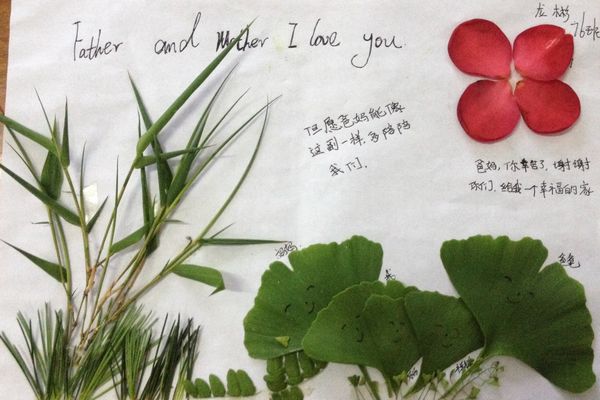 Father and Mother I love you.
龙彬
76班
但愿爸妈能像
这刻一样,多陪陪
我们.
爸妈,你辛苦了,谢谢
你们,给我一个幸福的家
妈妈
我
爸爸